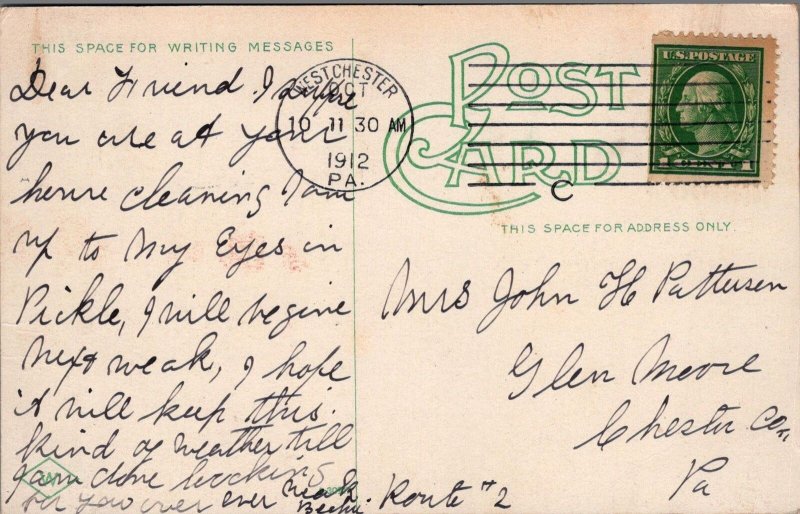 THIS SPACE FOR WRITING MESSAGES
Dear Friend. I
you are at your
house cleaning I am
up to My Eyes in
Pickle, I will begine
Next weak, I hope
it will keep this.
kind of weather till
I am done loocking
for you over ever
WESTCHESTER
OCT
10 11 30 AM
1912
PA.
POST
CARD
C
U.S. POSTAGE
1 CENT 1
THIS SPACE FOR ADDRESS ONLY.
Mrs John H Patterson
Glen Moore
Chester Co.,
Pa
Route #2